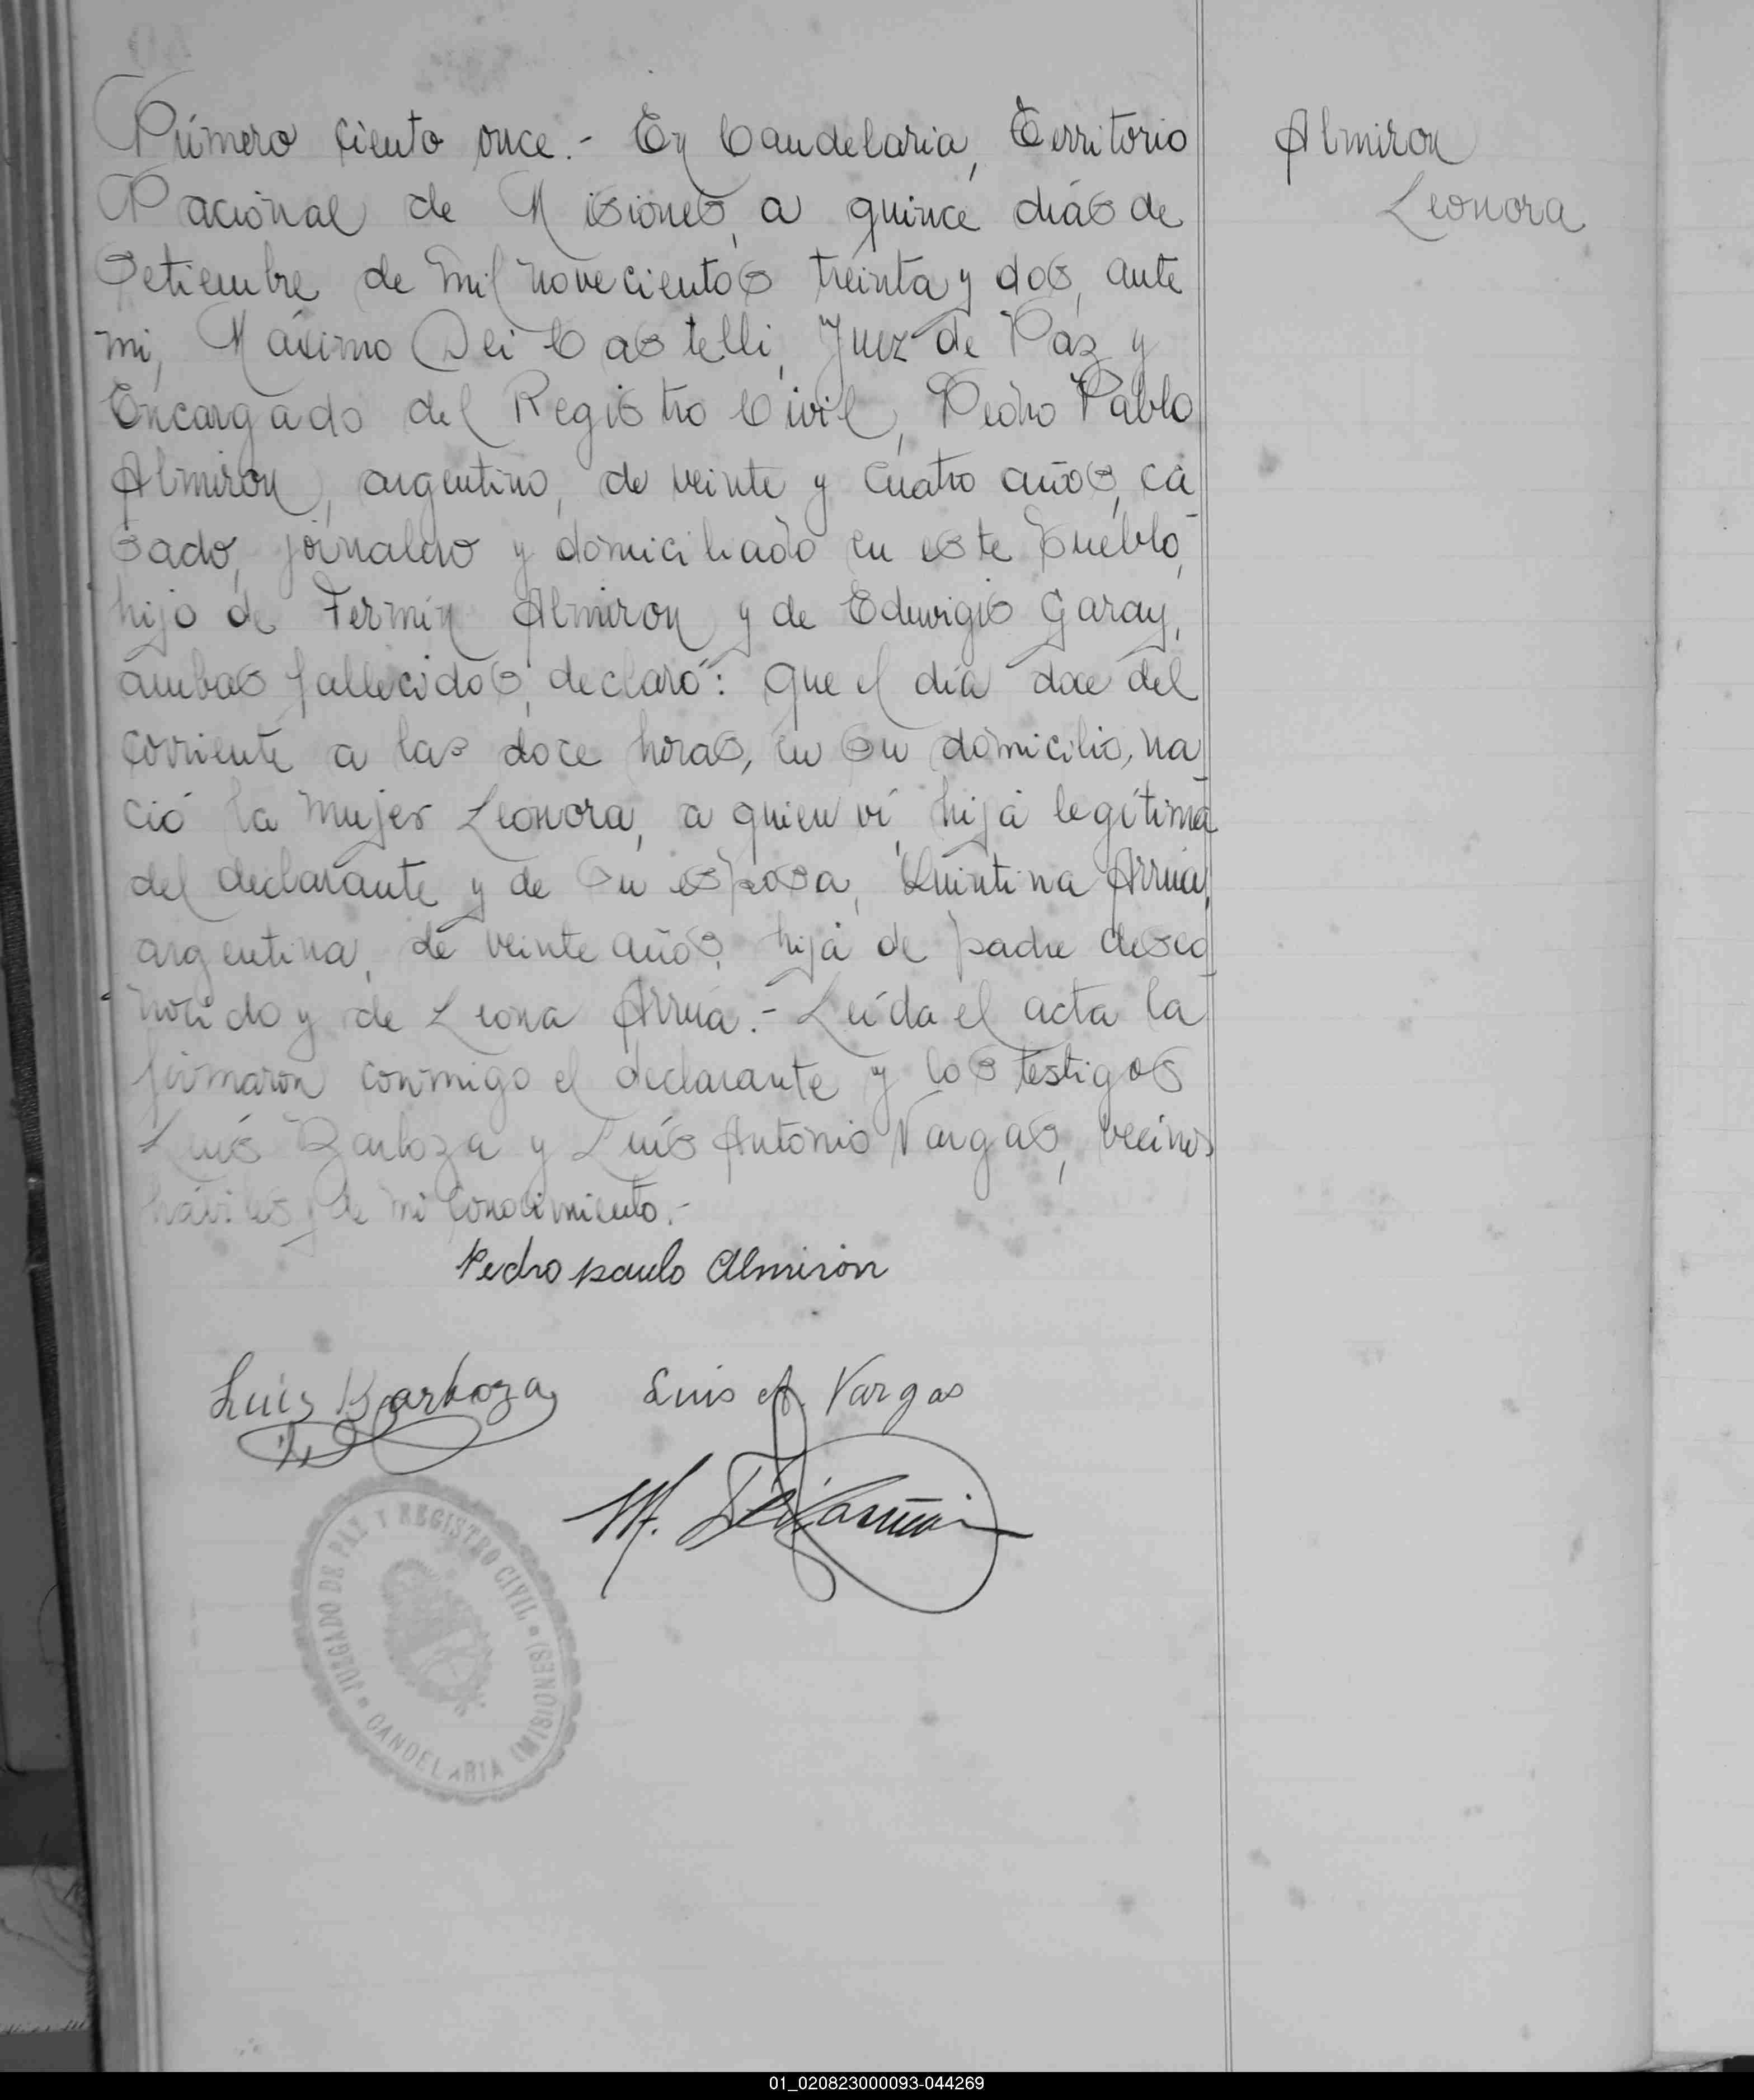 Número ciento once.- En Candelaria, Territorio
Nacional de Misiones, a quince días de
Setiembre de mil novecientos treinta y dos, ante
mi, Máximo Dei Castelli, Juez de Paz y
Encargado del Registro Civil, Pedro Pablo
Almiron, argentino, de veinte y cuatro años, ca
sado, jornalero y domiciliado en este pueblo,
hijo de Fermín Almiron y de Eduvigis Garay,
ambos fallecidos, declaró: Que el día doce del
corriente a las doce horas, en su domicilio, na
ció la mujer Leonora, a quien ví, hija legítima
del declarante y de su esposa, Quintina Arrua,
argentina, de veinte años, hija de padre desco
nocido y de Leona Arrua.- Leída el acta la
firmaron conmigo el declarante y los testigos
Luis Barboza y Luis Antonio Vargas, vecinos
háviles y de mi conocimiento.-
Almiron
Leonora
Pedro paulo Almiron
Luis Barboza
Luis A. Vargas
M.
JUZGADO DE PAZ Y REGISTRO CIVIL
CANDELARIA (MISIONES)
01_020823000093-044269